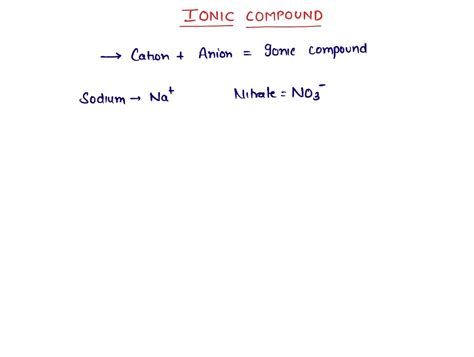 IONIC COMPOUND
→ Cation + Anion = Ionic compound
Sodium → Na⁺ Nitrate = NO₃⁻